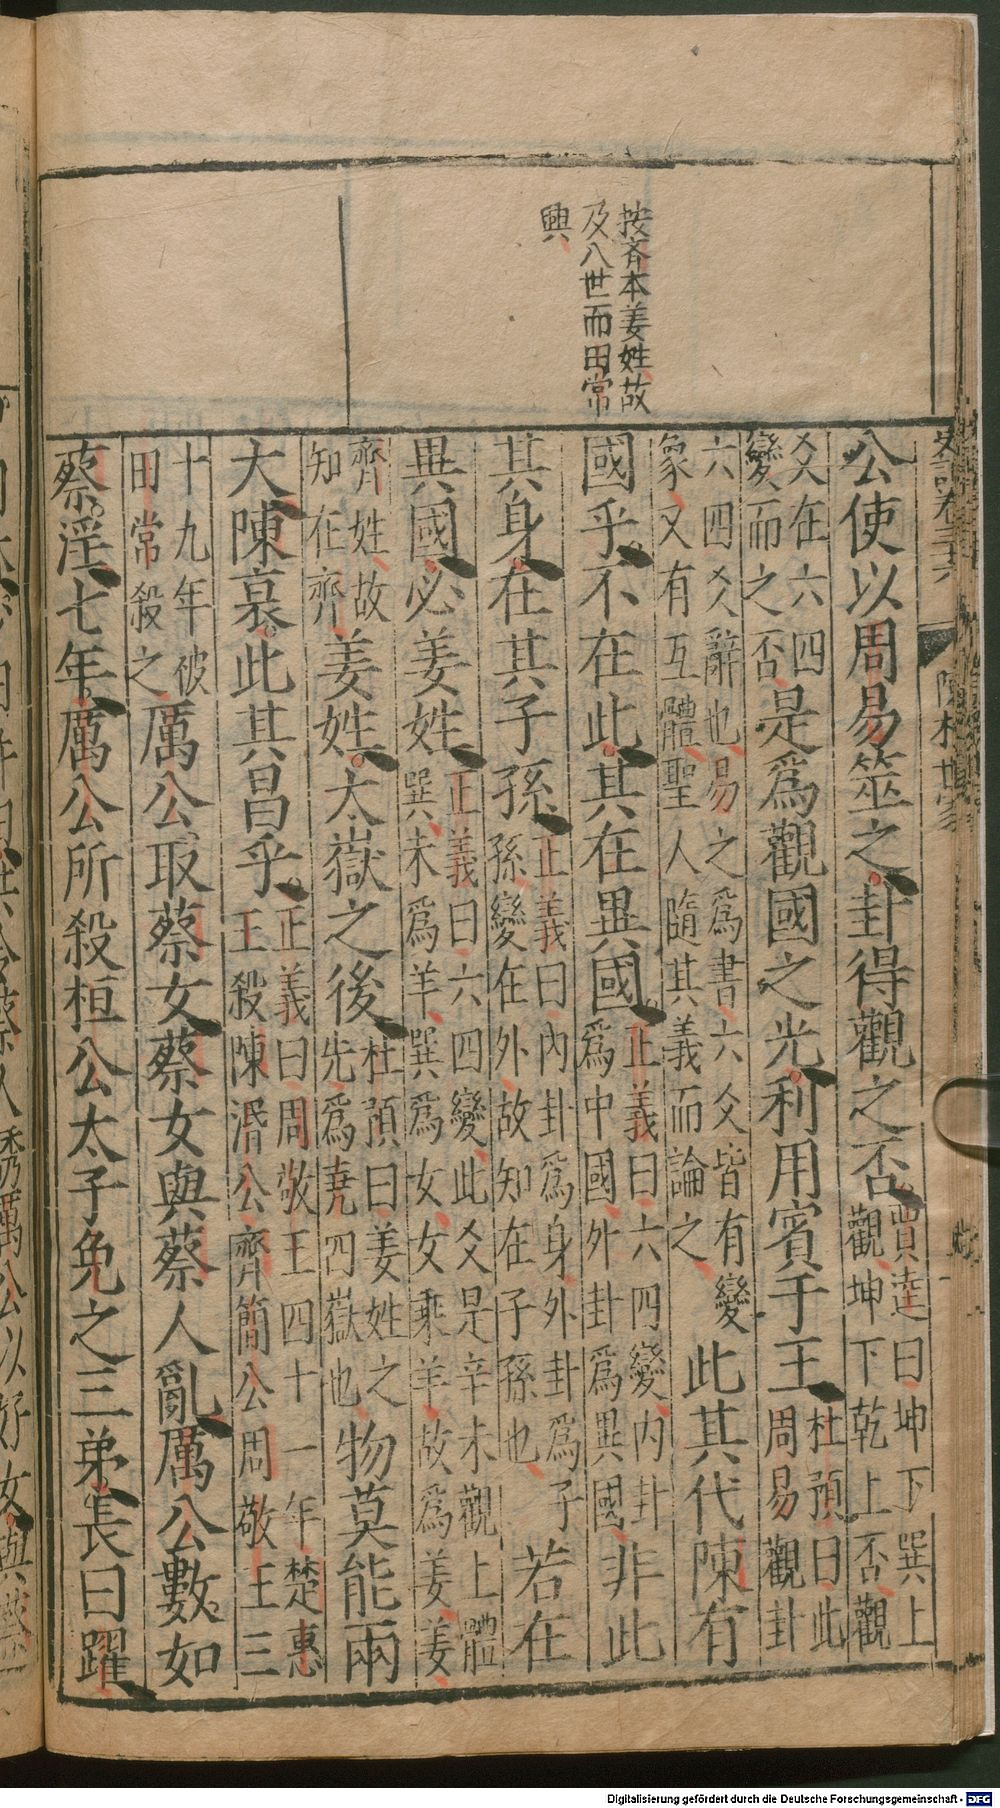 按斉本姜姓故
及八世而田常
興
史記卷三十六
陳杞世家
公使以周易筮之卦得觀之否賈逵曰坤下巽上
觀坤下乾上否觀
爻在六四
變而之否是爲觀國之光利用賓于王杜預曰此
周易觀卦
六四爻辭也易之爲書六爻皆有變
象又有互體聖人隨其義而論之此其代陳有
國乎不在此其在異國正義曰六四變內卦
爲中國外卦爲異國非此
其身在其子孫正義曰內卦爲身外卦爲子
孫變在外故知在子孫也若在
異國必姜姓正義曰六四變此爻是辛未觀上體
巽未爲羊巽爲女女乘羊故爲姜姜
齊姓故
知在齊姜姓太嶽之後杜預曰姜姓之
先爲堯四嶽也物莫能兩
大陳衰此其昌乎正義曰周敬王四十一年楚惠
王殺陳湣公齊簡公周敬王三
十九年被
田常殺之厲公取蔡女蔡女與蔡人亂厲公數如
蔡淫七年厲公所殺桓公太子免之三弟長曰躍
Digitalisierung gefördert durch die Deutsche Forschungsgemeinschaft - DFG